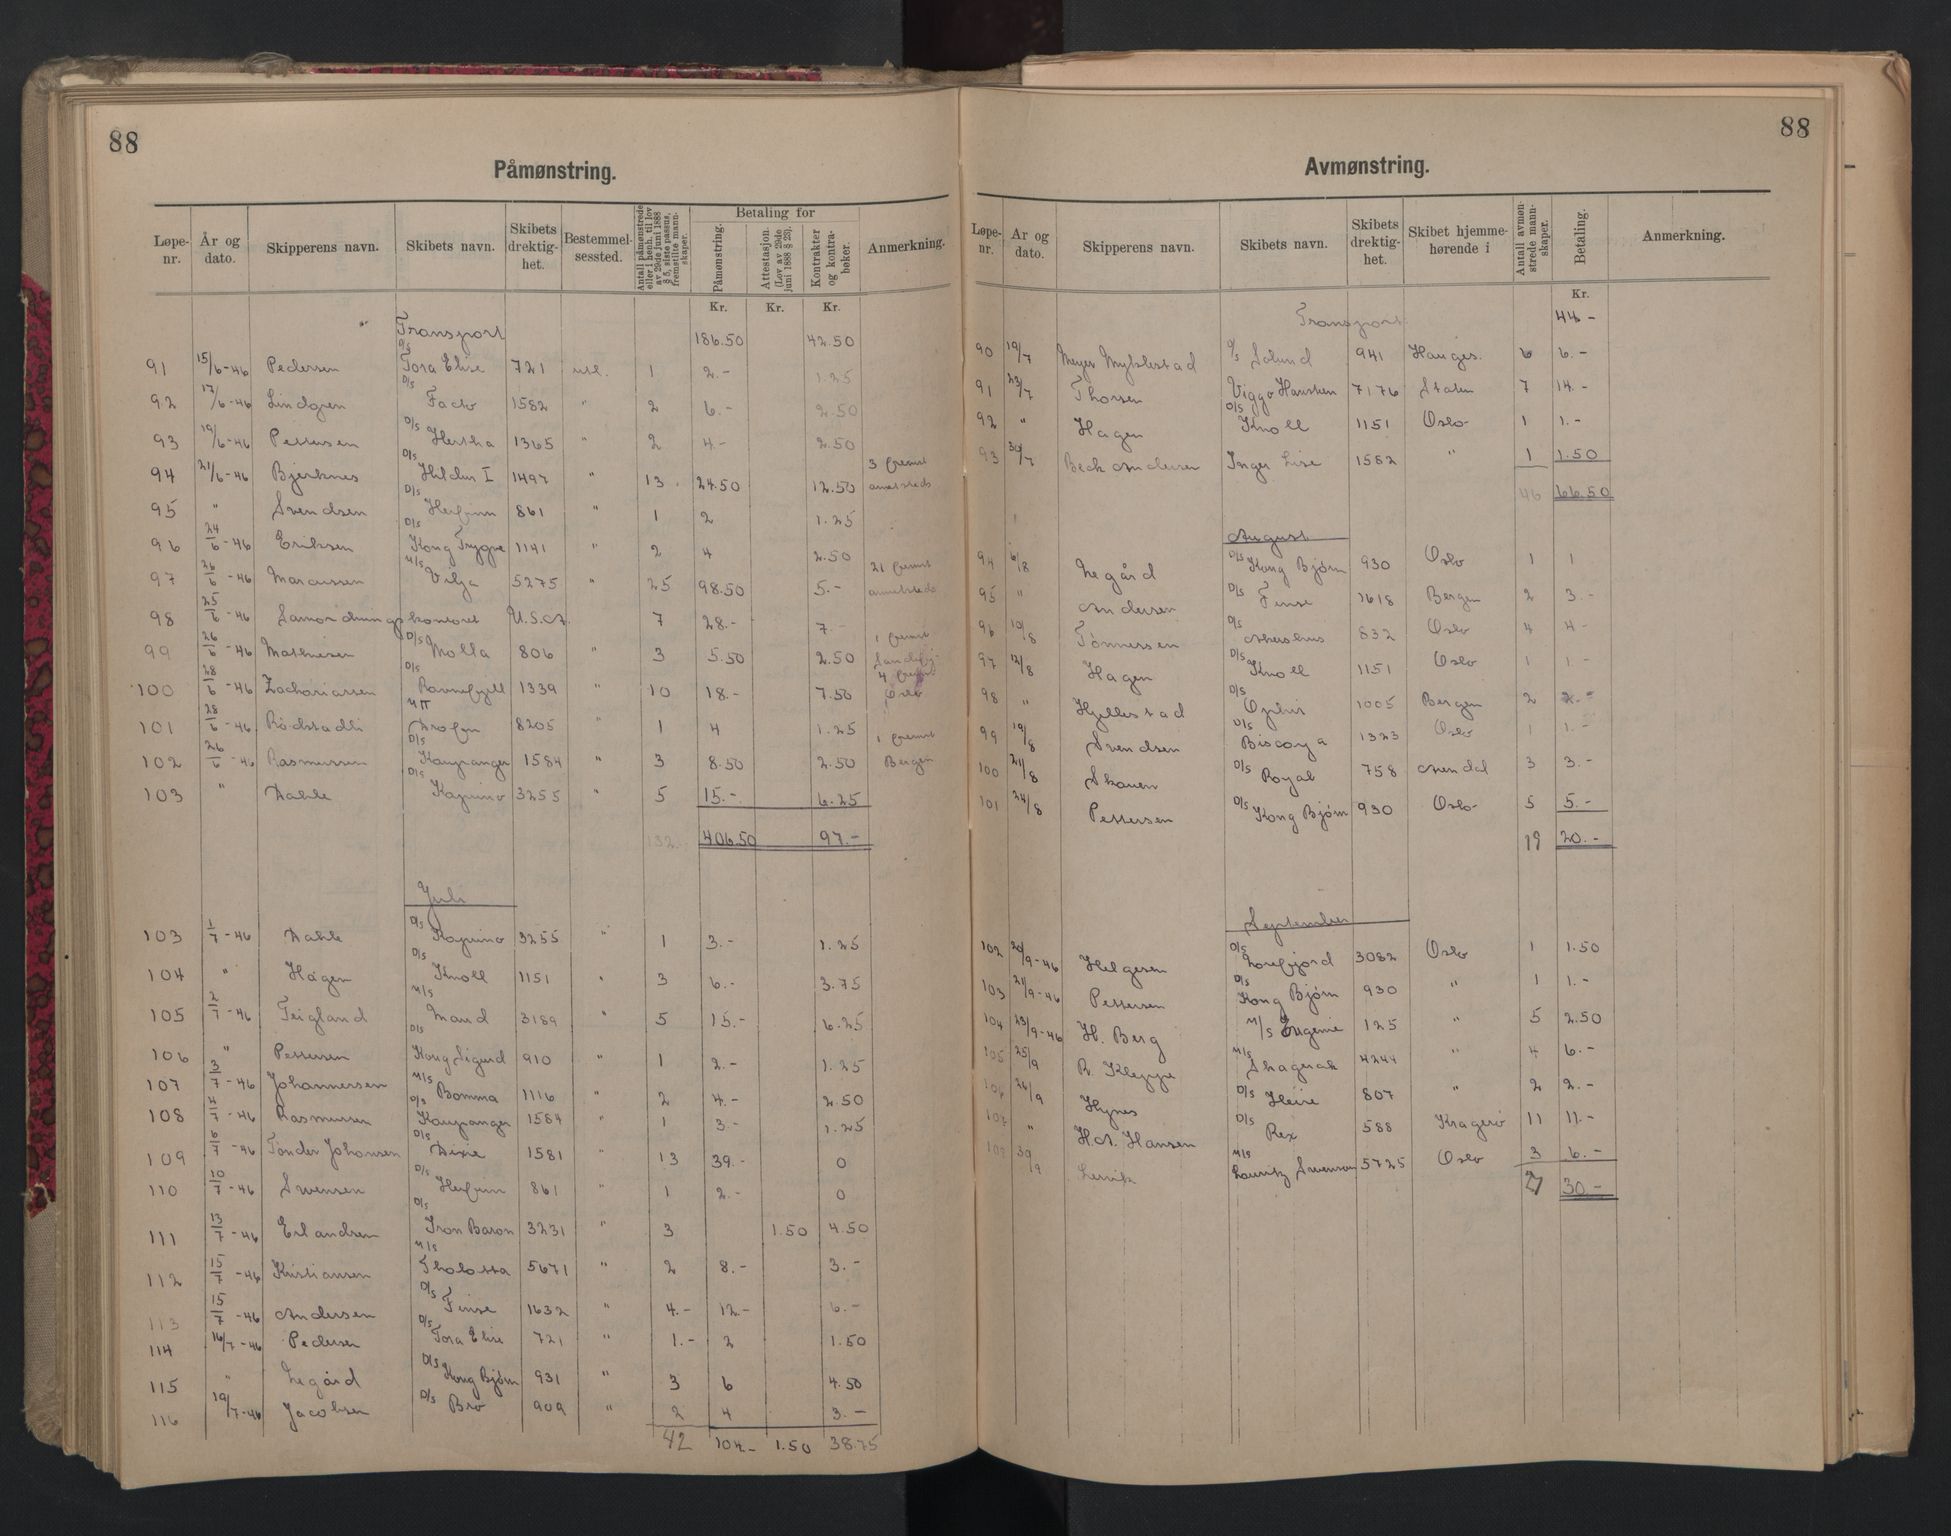 88
Påmønstring.
Løpe-nr. År og dato. Skipperens navn. Skibets navn. Skibets drektig-het. Bestemmel-sessted. Antall påmønstrede eller i henh. til lov av 29de juni 1888 § 5, siste passus, fremstilte mann-skaper. Betaling for Påmønstring. Attestasjon. (Lov av 29de juni 1888 § 23). Kontrakter og kontra-bøker. Anmerkning.
Kr. Kr. Kr.
" Transport 186.50 42.50
91 15/6-46 Pedersen D/S Tora Elise 721 utl. 1 2.- 1.25
92 17/6-46 Lindgren D/S Facto 1582 " 2 6.- 2.50
93 19/6-46 Pettersen D/S Hertha 1365 " 2 4.- 2.50
94 21/6-46 Bjerknes D/S Hildur I 1497 " 13 24.50 12.50 3 fremst annetsteds
95 " Svendsen D/S 861 " 1 2 1.25
96 24/6-46 Eriksen D/S Kong Trygve 1141 " 2 4 2.50
97 26/6-46 Marcussen M/S Vilja 5275 " 25 98.50 5.- 21 fremst annetsteds
98 25/6-46 Samordningskontoret U.S.A. 7 28.- 7.-
99 26/6-46 Mathiesen D/S Molla 806 " 3 5.50 2.50 1 fremst Sandefj.
100 28/6-46 Zachariassen D/S Ravnefjell 1339 " 10 18.- 7.50 4 fremst Oslo
101 28/6-46 Rødstadli M/T 8205 " 1 4 1.25
102 26/6-46 Rasmussen D/S Kaupanger 1584 " 3 8.50 2.50 1 fremst Bergen
103 " Dahle D/S Kapino 3255 " 5 15.- 6.25
132. 406.50 97.-
Juli
103 1/7-46 Dahle D/S Kapino 3255 " 1 3.- 1.25
104 " Hagen D/S Knoll 1151 " 3 6.- 3.75
105 2/7-46 Teigland M/S Maud 3189 " 5 15.- 6.25
106 " Pettersen D/S Kong Sigurd 910 " 1 2.- 1.25
107 3/7-46 Johannessen M/S Bomma 1116 " 2 4.- 2.50
108 4/7-46 Rasmussen D/S Kaupanger 1584 " 1 3.- 1.25
109 6/7-46 Tønder Johansen D/S Dixie 1581 " 13 39.- 0
110 10/7-46 Svensen D/S 861 " 1 2.- 0
111 13/7-46 Erlandsen D/S Iron Baron 3231 " 3 1.50 4.50
112 15/7-46 Kristiansen M/S Tholotta 5671 " 2 8.- 3.-
113 15/7-46 Andersen D/S Finse 1632 " 4.- 12.- 6.-
114 16/7-46 Pedersen D/S Tora Elise 721 " 1.- 2 1.50
115 " Legård D/S Kong Bjørn 931 " 3 6 4.50
116 19/7-46 Jacobsen D/S Bro 909 " 2 4 3.-
42 104.- 1.50 38.75
88
Avmønstring.
Løpe-nr. År og dato. Skipperens navn. Skibets navn. Skibets drektig-het. Skibet hjemme-hørende i Antall avmøn-strede mann-skaper. Betaling. Anmerkning.
Kr.
Transport 44.-
90 19/7 Meyer Myklestad D/S Solund 941 Hauges. 6 6.-
91 23/7 Thorsen Viggo Hansteen 7176 Staten 7 14.-
92 " Hagen D/S Knoll 1151 Oslo 1 1.-
93 30/7 Beck Andersen Inger Lise 1582 " 1 1.50
46 66.50
August
94 6/8 Legård D/S Kong Bjørn 930 Oslo 1 1
95 " Andersen D/S Finse 1618 Bergen 2 3.-
96 10/8 Tønnessen D/S Akershus 832 Oslo 4 4.-
97 12/8 Hagen D/S Knoll 1151 Oslo 1 1.-
98 " Hjellestad D/S Ophir 1005 Bergen 2 2.-
99 19/8 Svendsen D/S Biscaya 1323 Oslo 1 1.-
100 21/8 Skauen D/S Royal 758 Arendal 3 3.-
101 24/8 Pettersen D/S Kong Bjørn 930 Oslo 5 5.-
19 20.-
September
102 20/9-46 Helgesen D/S 3082 Oslo 1 1.50
103 21/9-46 Pettersen D/S Kong Bjørn 930 " 1 1.-
104 23/9-46 H. Berg M/S Eugenie 125 " 5 2.50
105 25/9 R. Kleppe M/S Skagerak 4244 " 4 6.-
106 26/9 Hynes D/S Heire 807 " 2 2.-
107 " H.A. Hansen D/S Rex 588 Kragerø 11 11.-
108 30/9 Lervik M/S Lauritz Swenson 5725 Oslo 3 6.-
27 30.-